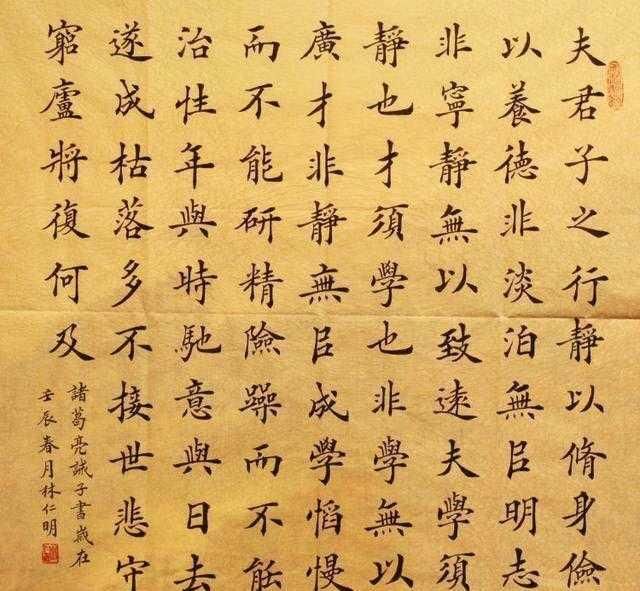 夫君子之行靜以脩身儉
以養德非淡泊無㠯明志
非寧靜無以致遠夫學須
靜也才須學也非學無以
廣才非靜無㠯成學慆慢
而不能研精險躁而不能
治性年與時馳意與日去
遂成枯落多不接世悲守
窮廬將復何及
諸葛亮誡子書歲在
壬辰春月林仁明